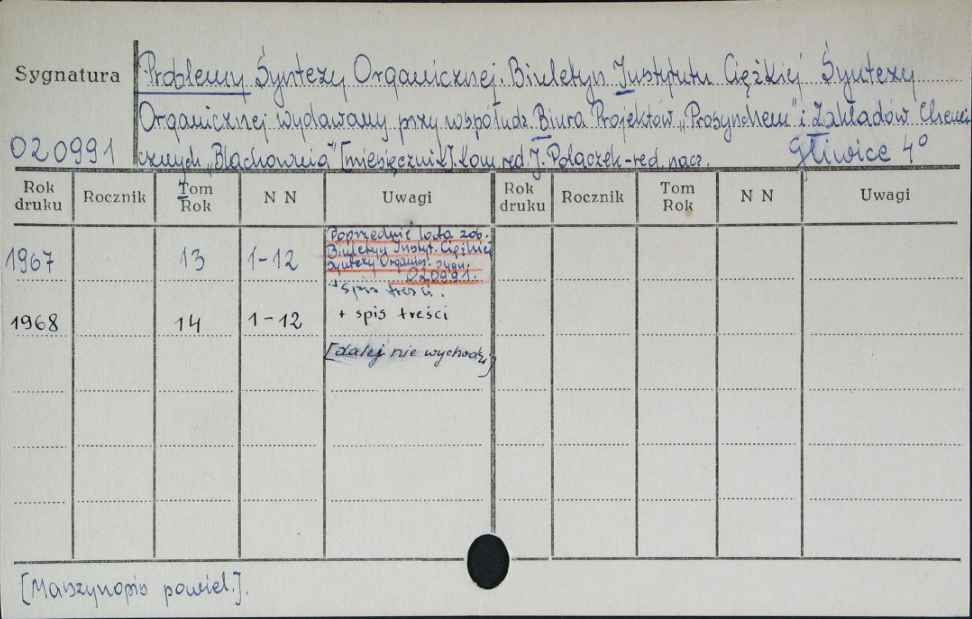 Sygnatura
020991
Problemy Syntezy Organicznej. Biuletyn Instytutu Ciężkiej Syntezy
Organicznej wydawany przy współudz. Biura Projektów „Prosynchem" i Zakładów Chemi
cznych „Blachownia" [miesięcznik]. Kom. red. J. Polaczek - red. nacz.
Gliwice 4°
Rok druku Rocznik Tom Rok N N Uwagi Rok druku Rocznik Tom Rok N N Uwagi
1967 13 1-12 Poprzednie lata zob.
Biuletyn Instyt. Ciężkiej
Syntezy Organicz. sygn.
020991.
+ spis treści.
1968 14 1-12 + spis treści
[dalej nie wychodzi]
[Maszynopis powiel.].